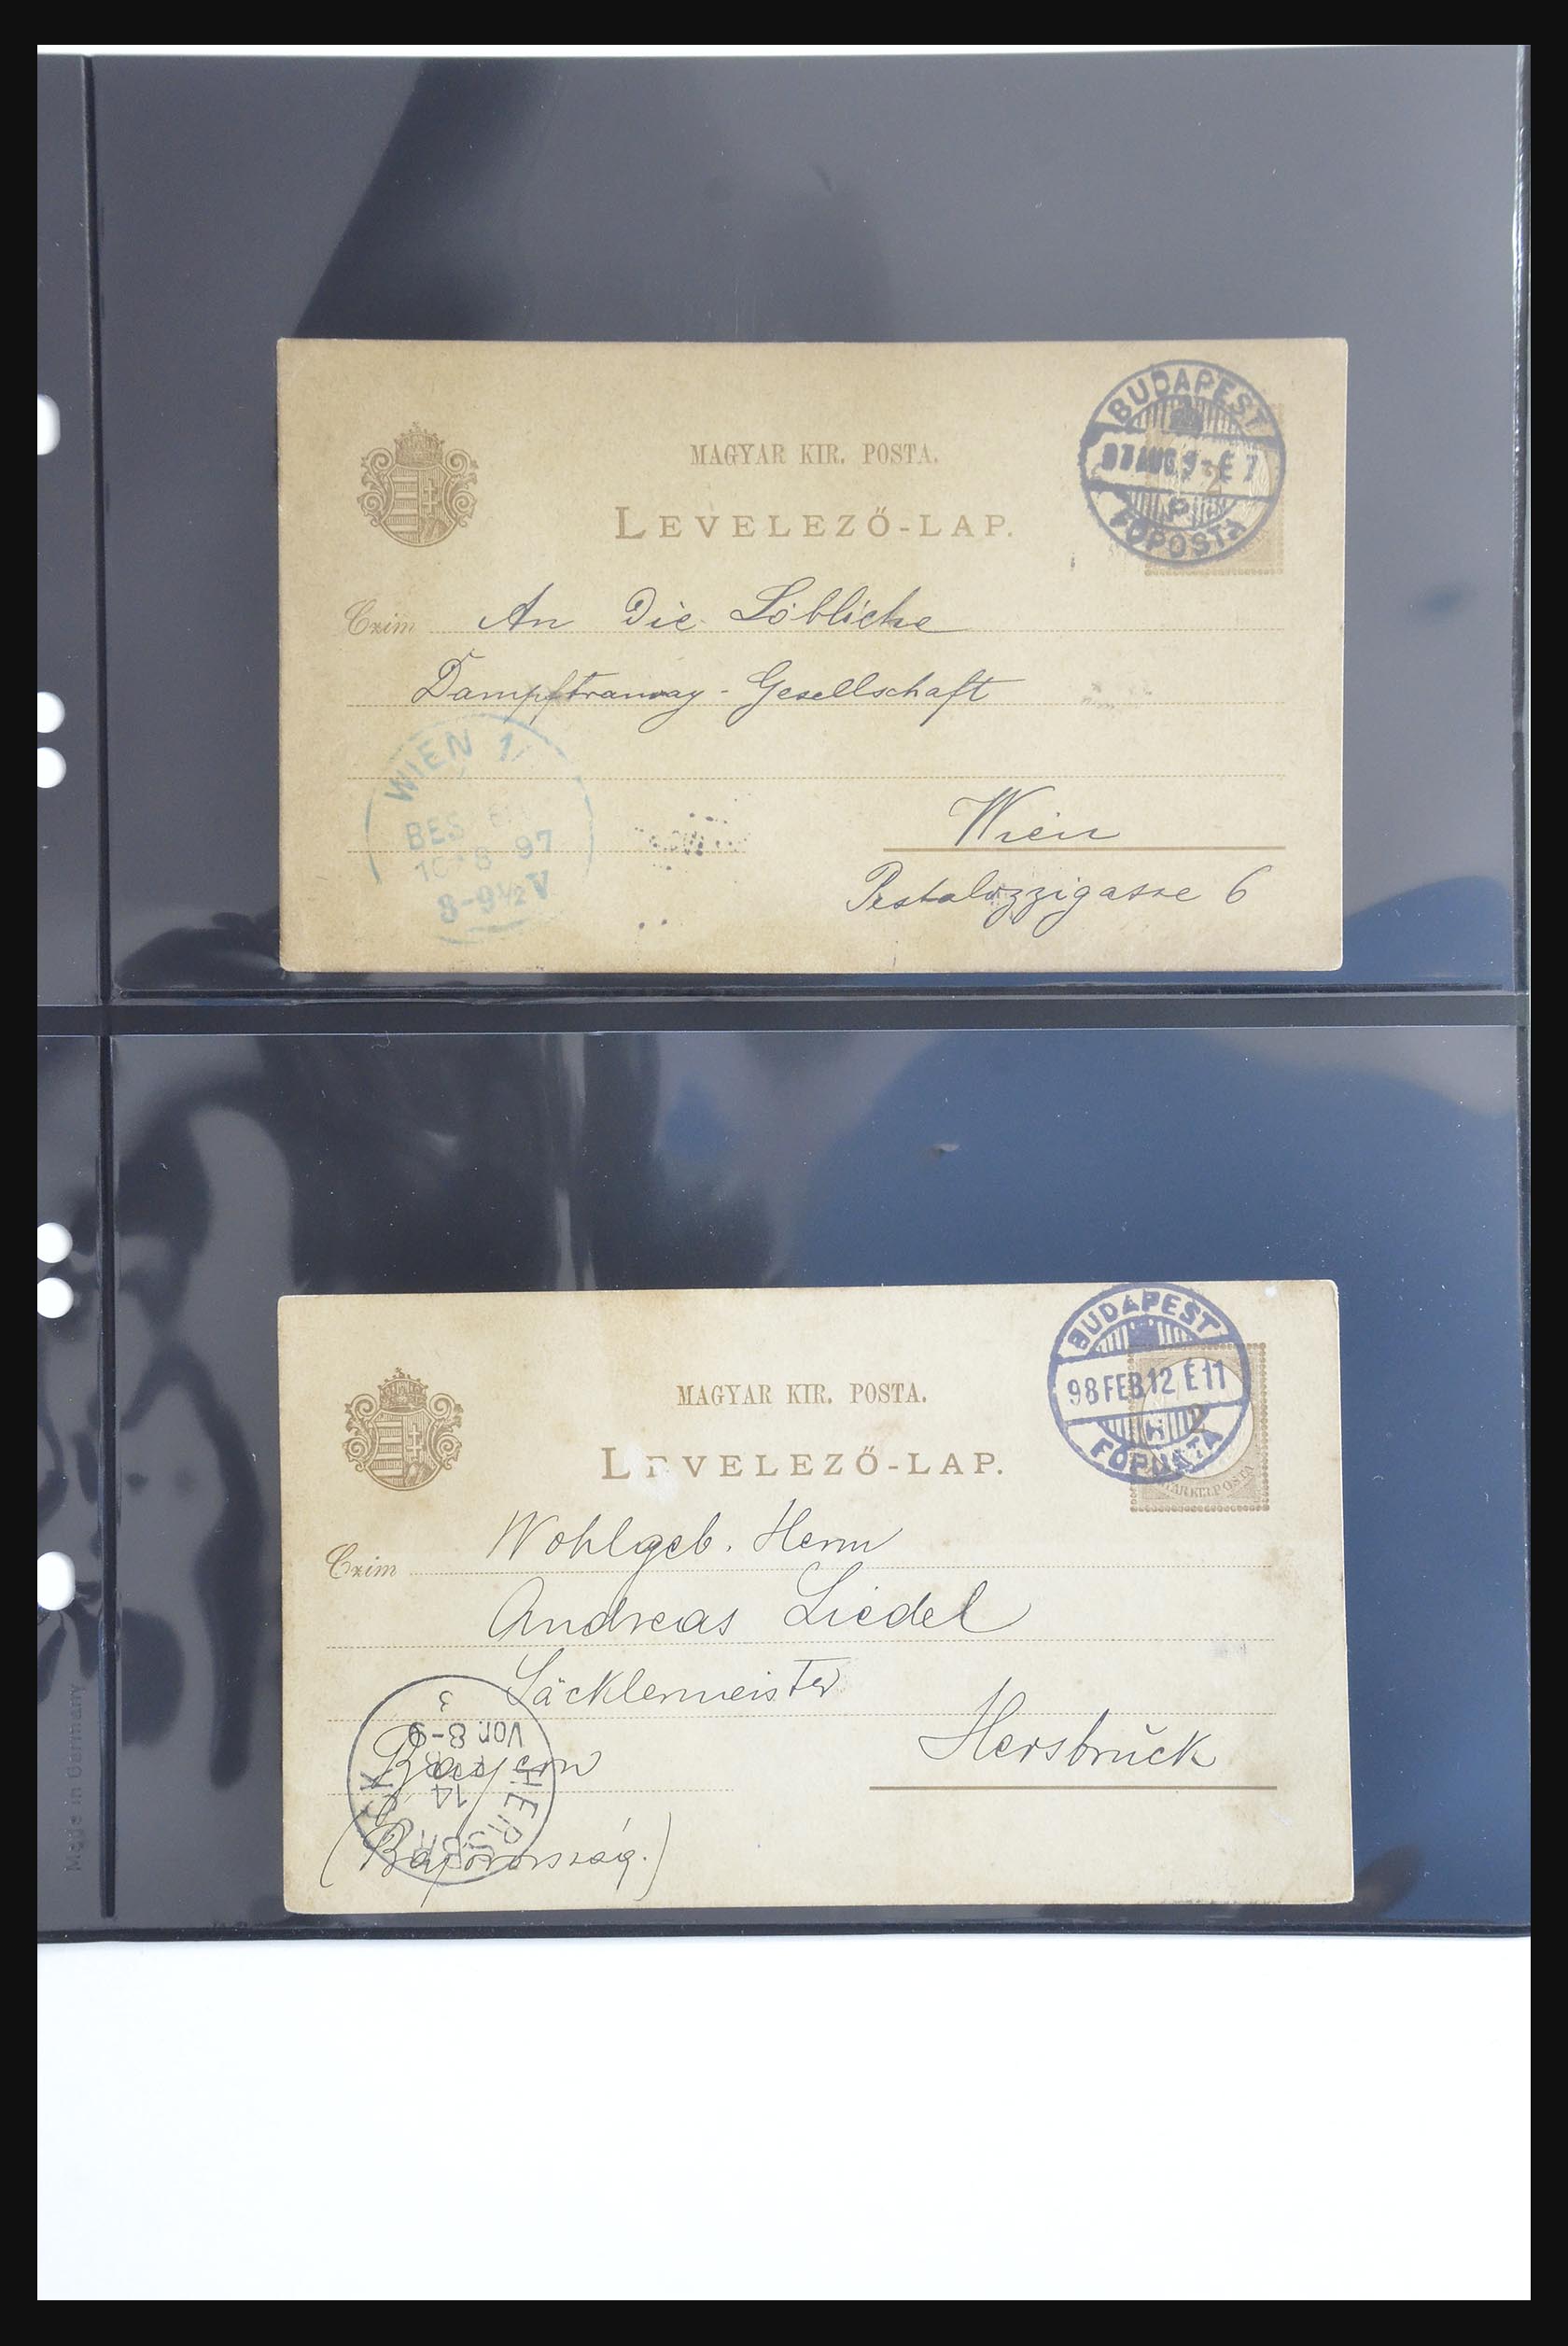 MAGYAR KIR. POSTA.
LEVELEZŐ-LAP.
BUDAPEST
97 AUG. 9 E 7
P
FŐPOSTA
Czim An Die Löbliche
Dampftramway - Gesellschaft
Wien
Pestalozzigasse 6
WIEN 1/
10 8 97
8-9½V
MAGYAR KIR. POSTA.
LEVELEZŐ-LAP.
BUDAPEST
98 FEB.12 E 11
H
FŐPOSTA
2
Czim Wohlgeb. Herrn
Andreas Liedel
Säcklermeister
Hersbruck
Bayern
(Bajorország.)
HERSBRUCK
14
Vor. 8-9
3
Made in Germany